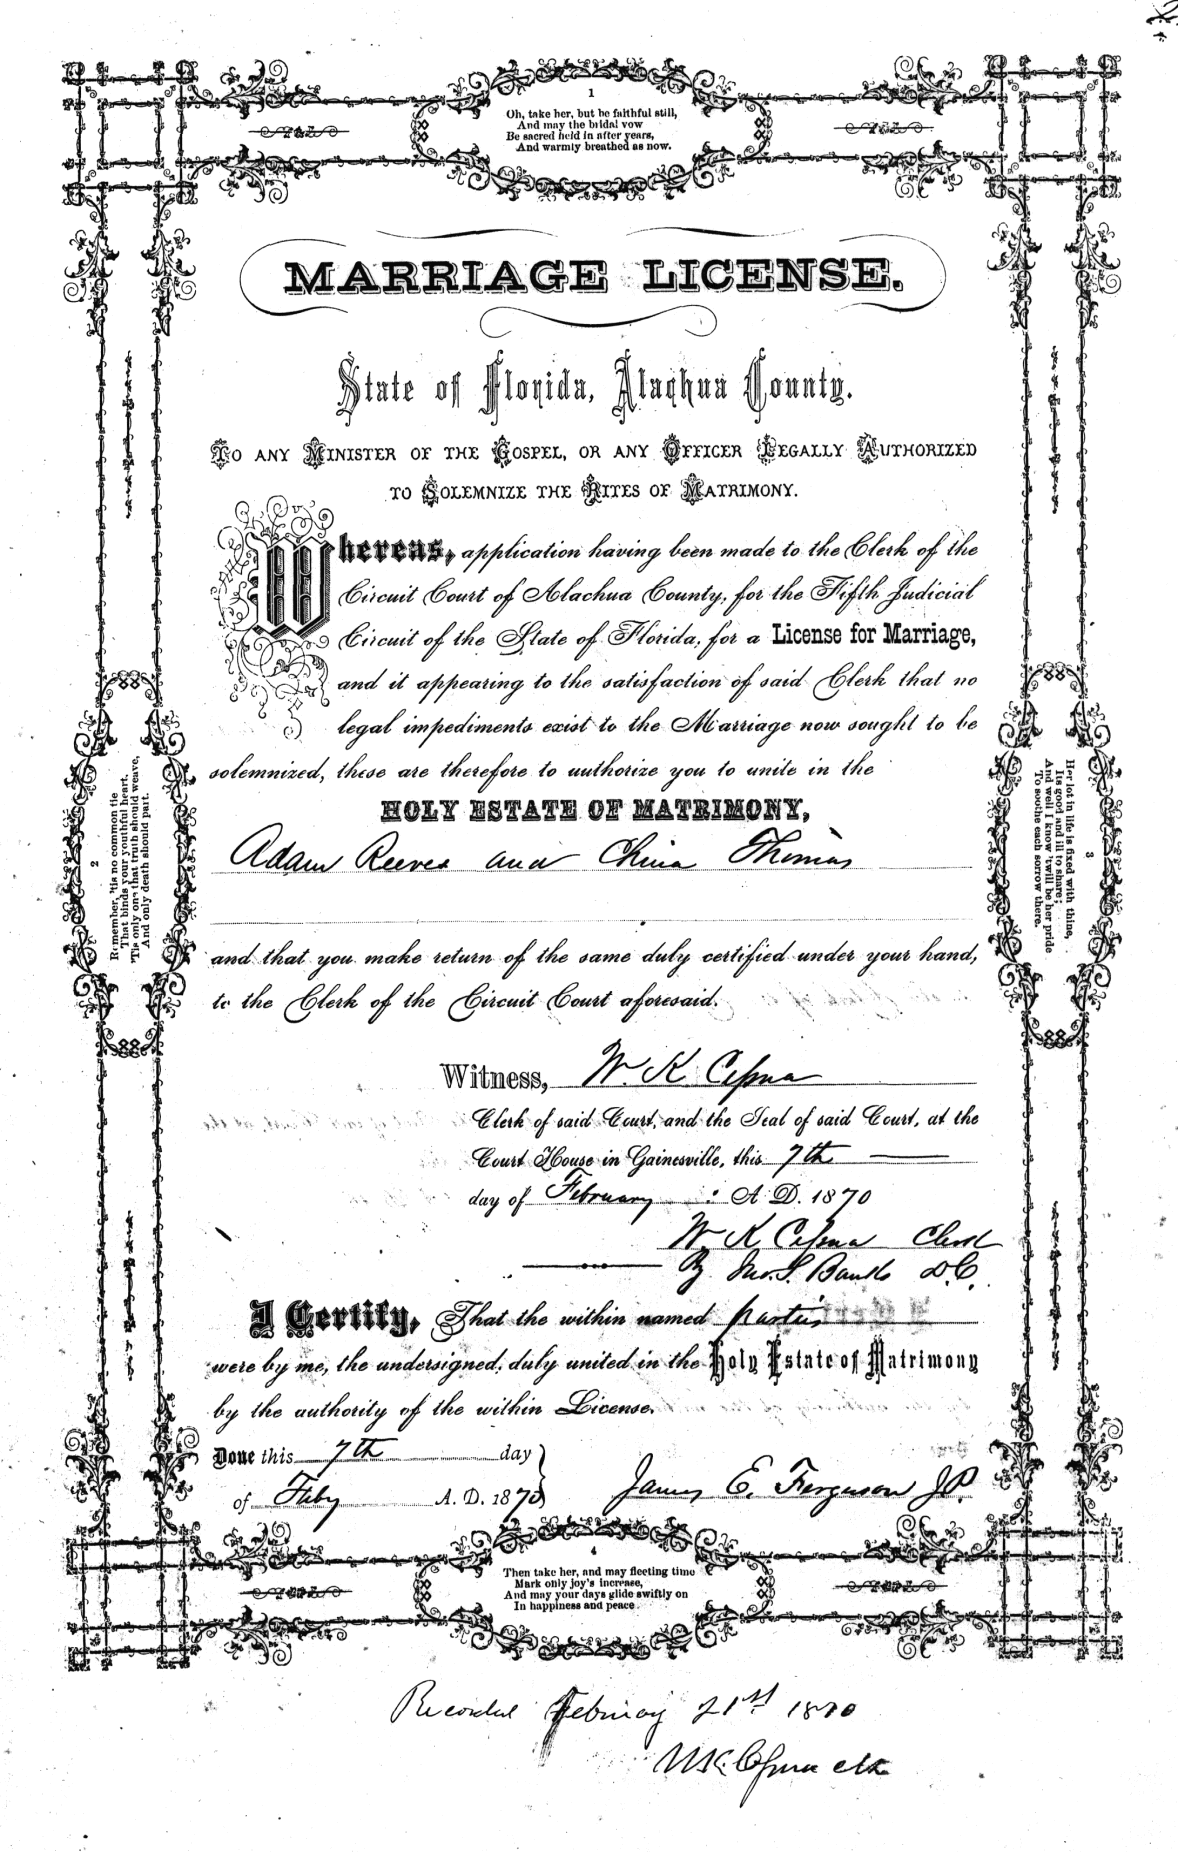 1
Oh, take her, but be faithful still,
And may the bridal vow
Be sacred held in after years,
And warmly breathed as now.
MARRIAGE LICENSE.
State of Florida, Alachua County.
TO ANY MINISTER OF THE GOSPEL, OR ANY OFFICER LEGALLY AUTHORIZED
TO SOLEMNIZE THE RITES OF MATRIMONY.
Whereas, application having been made to the Clerk of the
Circuit Court of Alachua County, for the Fifth Judicial
Circuit of the State of Florida, for a License for Marriage,
and it appearing to the satisfaction of said Clerk that no
legal impediments exist to the Marriage now sought to be
solemnized, these are therefore to authorize you to unite in the
HOLY ESTATE OF MATRIMONY,
Adam Reeves and China Thomas
and that you make return of the same duly certified under your hand,
to the Clerk of the Circuit Court aforesaid.
Witness, W. K Cessna
Clerk of said Court, and the Seal of said Court, at the
Court House in Gainesville, this 7th
day of February : A. D. 1870
W. K Cessna Clerk
By Jno. S. Banks D.C.
I Certify, That the within named parties
were by me, the undersigned, duly united in the Holy Estate of Matrimony
by the authority of the within License.
Done this 7th day
of Feby A. D. 1870
James E. Ferguson J.P.
2
Remember, 'tis no common tie
That binds your youthful heart,
'Tis only one that truth should weave,
And only death should part.
3
Her lot in life is fixed with thine,
Its good and ill to share;
And well I know 'twill be her pride
To soothe each sorrow there.
4
Then take her, and may fleeting time
Mark only joy's increase,
And may your days glide swiftly on
In happiness and peace.
Recorded February 21st 1870
W K Cessna clk